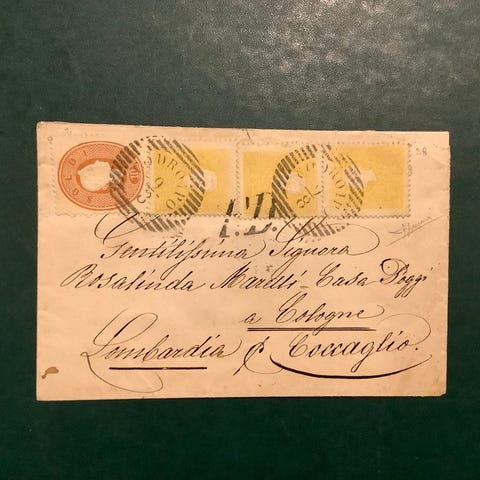 SOLDI 10
CODROIPO
CODROIPO
P.D.
Gentilissima Signora
Rosalinda Casa Poggi
a Cologne
Lombardia p Coccaglio.